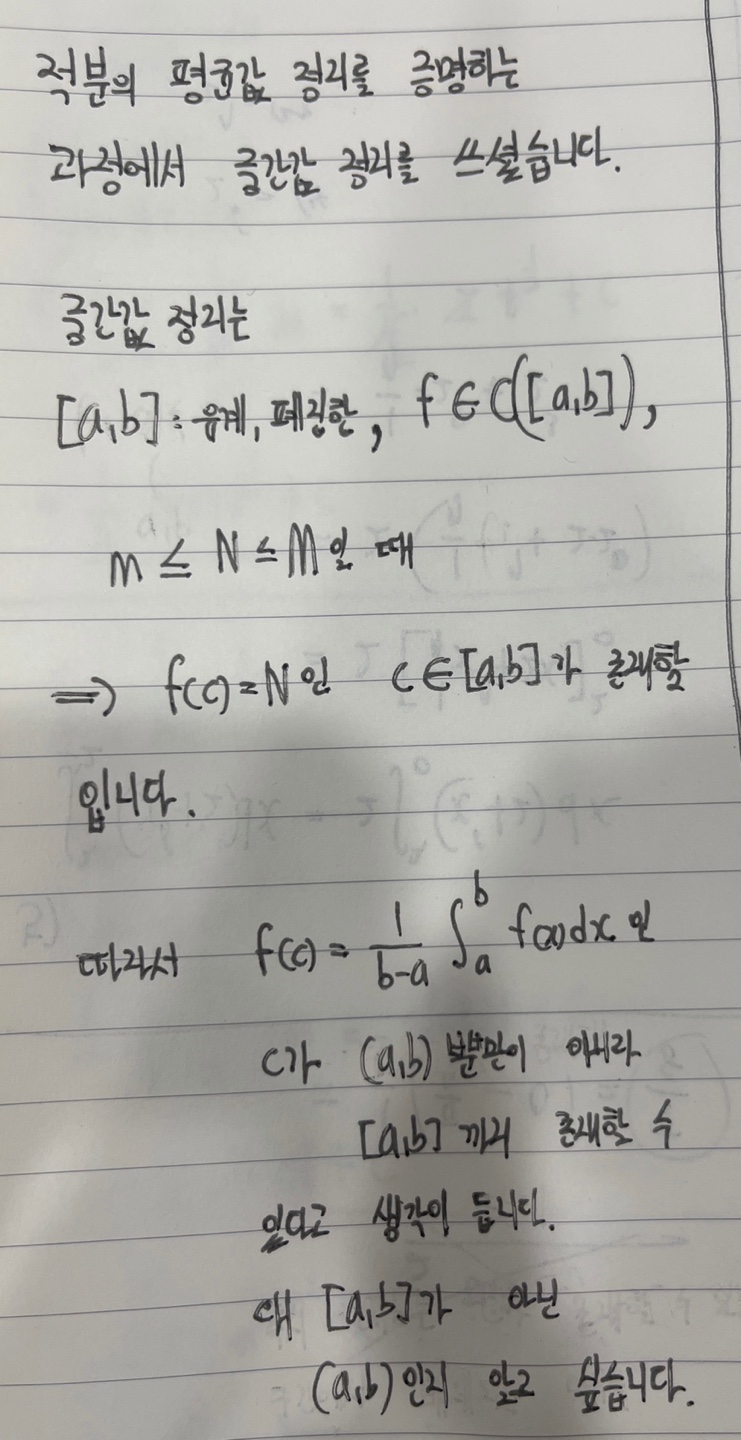 적분의 평균값 정리를 증명하는
과정에서 중간값 정리를 쓰셨습니다.
중간값 정리는
[a,b] : 유계, 폐집합, f ∈ C([a,b]),
m ≤ N ≤ M 일 때
⇒ f(c) = N 인 c ∈ [a,b] 가 존재함
입니다.
따라서 f(c) = \frac{1}{b-a} ∫_a^b f(x)dx 인
c가 (a,b) 뿐만이 아니라
[a,b] 까지 존재할 수
있다고 생각이 듭니다.
왜 [a,b]가 아닌
(a,b)인지 알고 싶습니다.